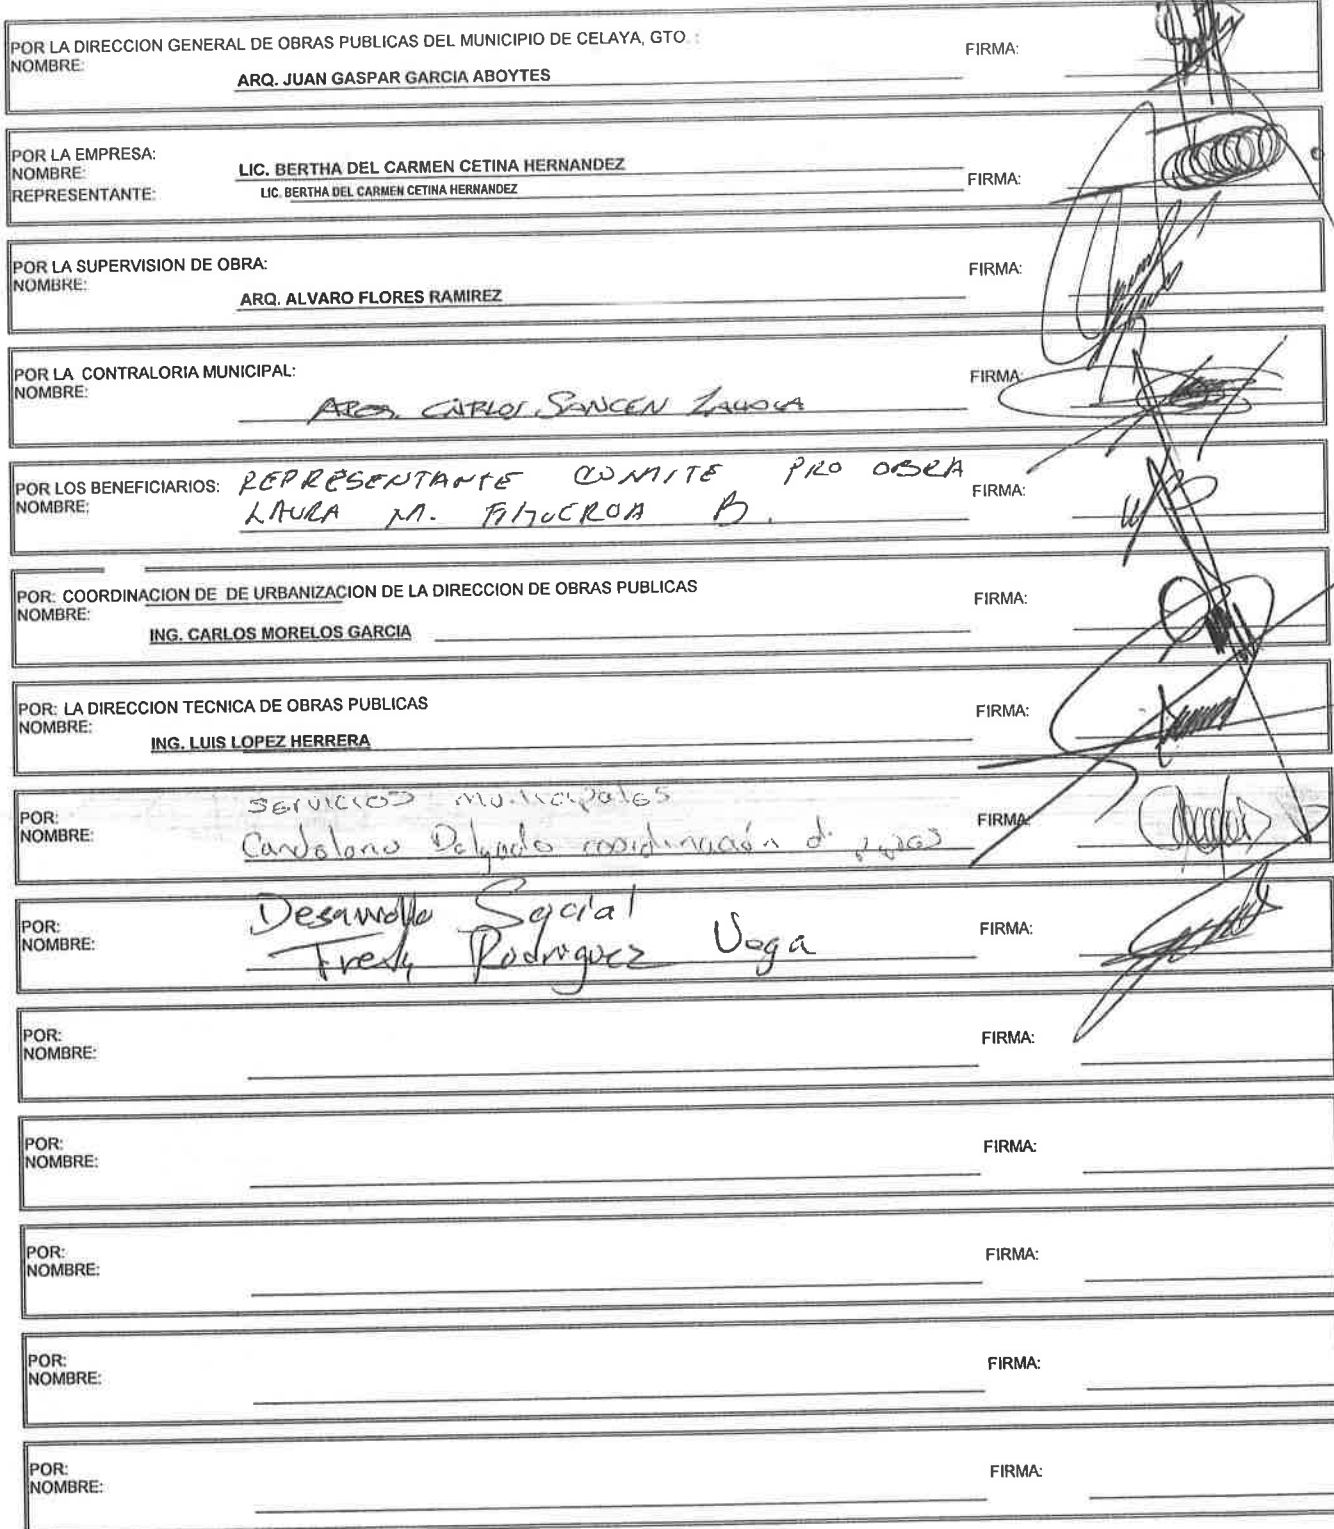 POR LA DIRECCION GENERAL DE OBRAS PUBLICAS DEL MUNICIPIO DE CELAYA, GTO. :
NOMBRE: FIRMA:
ARQ. JUAN GASPAR GARCIA ABOYTES
POR LA EMPRESA:
NOMBRE: LIC. BERTHA DEL CARMEN CETINA HERNANDEZ
REPRESENTANTE: LIC. BERTHA DEL CARMEN CETINA HERNANDEZ FIRMA:
POR LA SUPERVISION DE OBRA:
NOMBRE: FIRMA:
ARQ. ALVARO FLORES RAMIREZ
POR LA CONTRALORIA MUNICIPAL:
NOMBRE: FIRMA:
CARLOS SANCEN
POR LOS BENEFICIARIOS: REPRESENTANTE COMITE PRO OBRA
NOMBRE: LAURA M. FIGUEROA B. FIRMA:
POR: COORDINACION DE DE URBANIZACION DE LA DIRECCION DE OBRAS PUBLICAS
NOMBRE: FIRMA:
ING. CARLOS MORELOS GARCIA
POR: LA DIRECCION TECNICA DE OBRAS PUBLICAS
NOMBRE: FIRMA:
ING. LUIS LOPEZ HERRERA
POR: Servicios Municipales
NOMBRE: Candelario Delgado coordinación d. FIRMA:
POR: Desarrollo Social
NOMBRE: Rodriguez Vega FIRMA:
POR:
NOMBRE: FIRMA:
POR:
NOMBRE: FIRMA:
POR:
NOMBRE: FIRMA:
POR:
NOMBRE: FIRMA:
POR:
NOMBRE: FIRMA: